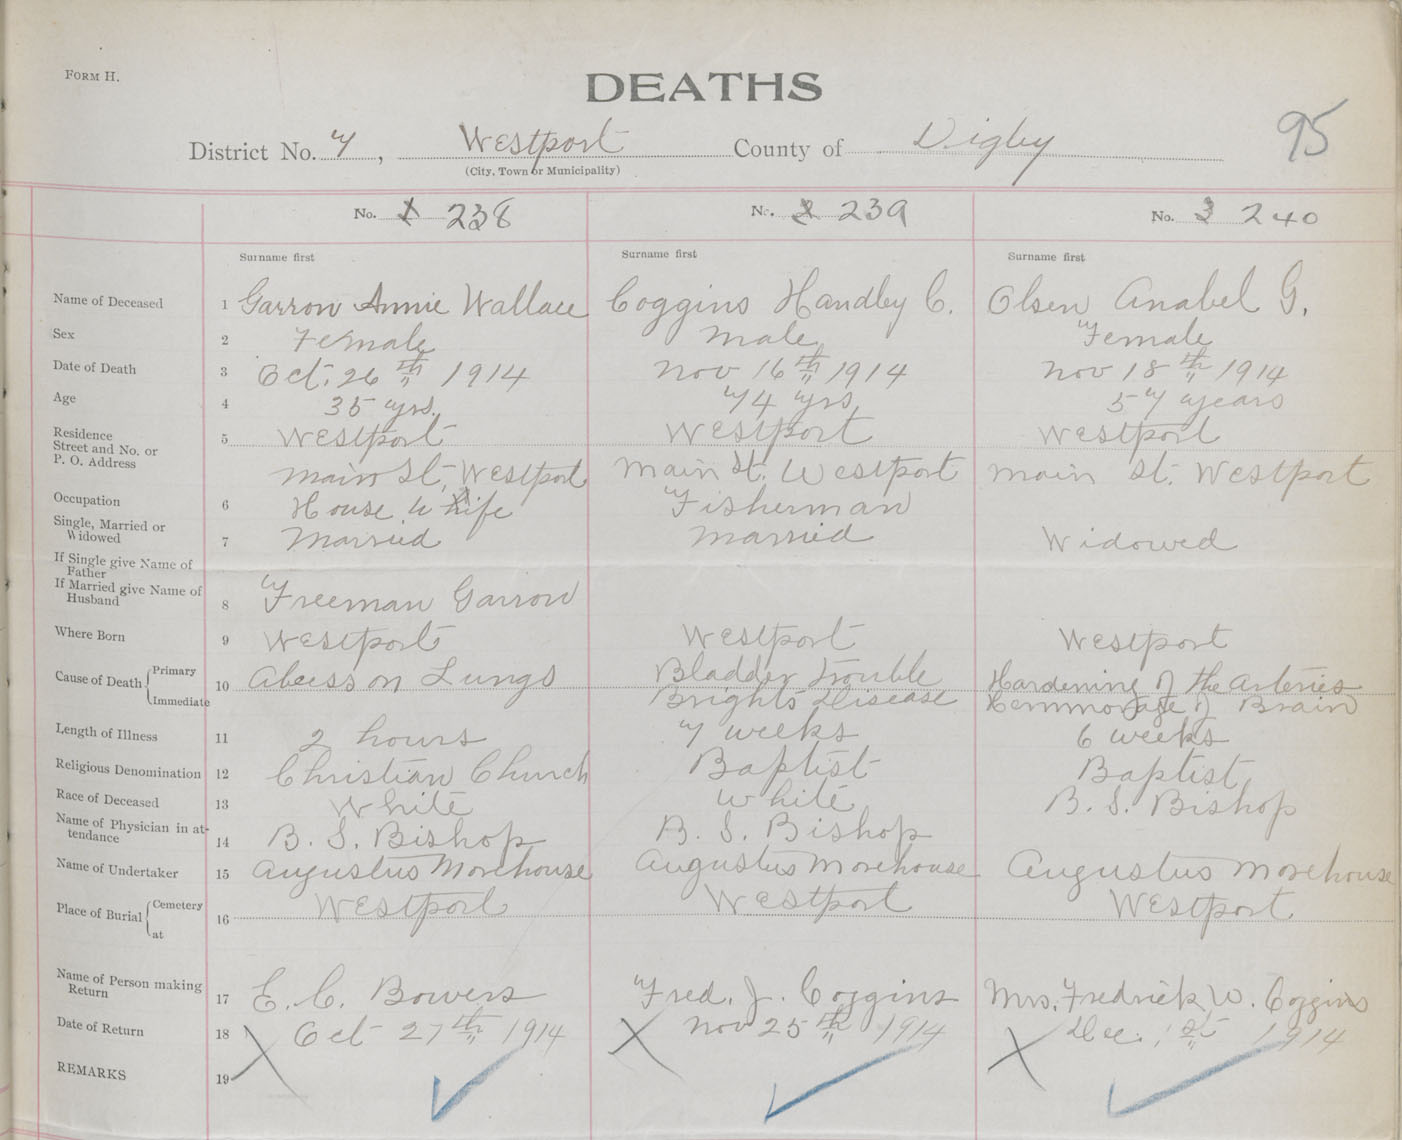 FORM H.
DEATHS
95
District No. 7, Westport County of Digby
(City, Town or Municipality)
No. 1 238 No. 2 239 No. 3 240
Surname first Surname first Surname first
Name of Deceased 1 Garron Annie Wallace Coggins Handley C. Olsen Anabel G.
Sex 2 Female Male Female
Date of Death 3 Oct. 26th 1914 Nov 16th 1914 Nov 18th 1914
Age 4 35 yrs. 74 yrs 57 years
Residence 5 Westport Westport Westport
Street and No. or
P. O. Address Main St, Westport Main St. Westport Main St. Westport
Occupation 6 House Wife Fisherman
Single, Married or
Widowed 7 Married Married Widowed
If Single give Name of
Father
If Married give Name of
Husband 8 Freeman Garron
Where Born 9 Westport Westport Westport
Cause of Death Primary 10 Abcess on Lungs Bladder Trouble Hardening of the Arteries
Immediate Brights Disease Hemmorage of Brain
Length of Illness 11 2 hours 7 weeks 6 weeks
Religious Denomination 12 Christian Church Baptist Baptist
Race of Deceased 13 White White B. S. Bishop
Name of Physician in at-
tendance 14 B. S. Bishop B. S. Bishop
Name of Undertaker 15 Augustus Morehouse Augustus Morehouse Augustus Morehouse
Place of Burial Cemetery 16 Westport Westport Westport
at
Name of Person making
Return 17 E. C. Bowers Fred. J. Coggins Mrs. Fredrick W. Coggins
Date of Return 18 Oct 27th 1914 Nov 25th 1914 Dec. 1st 1914
REMARKS 19